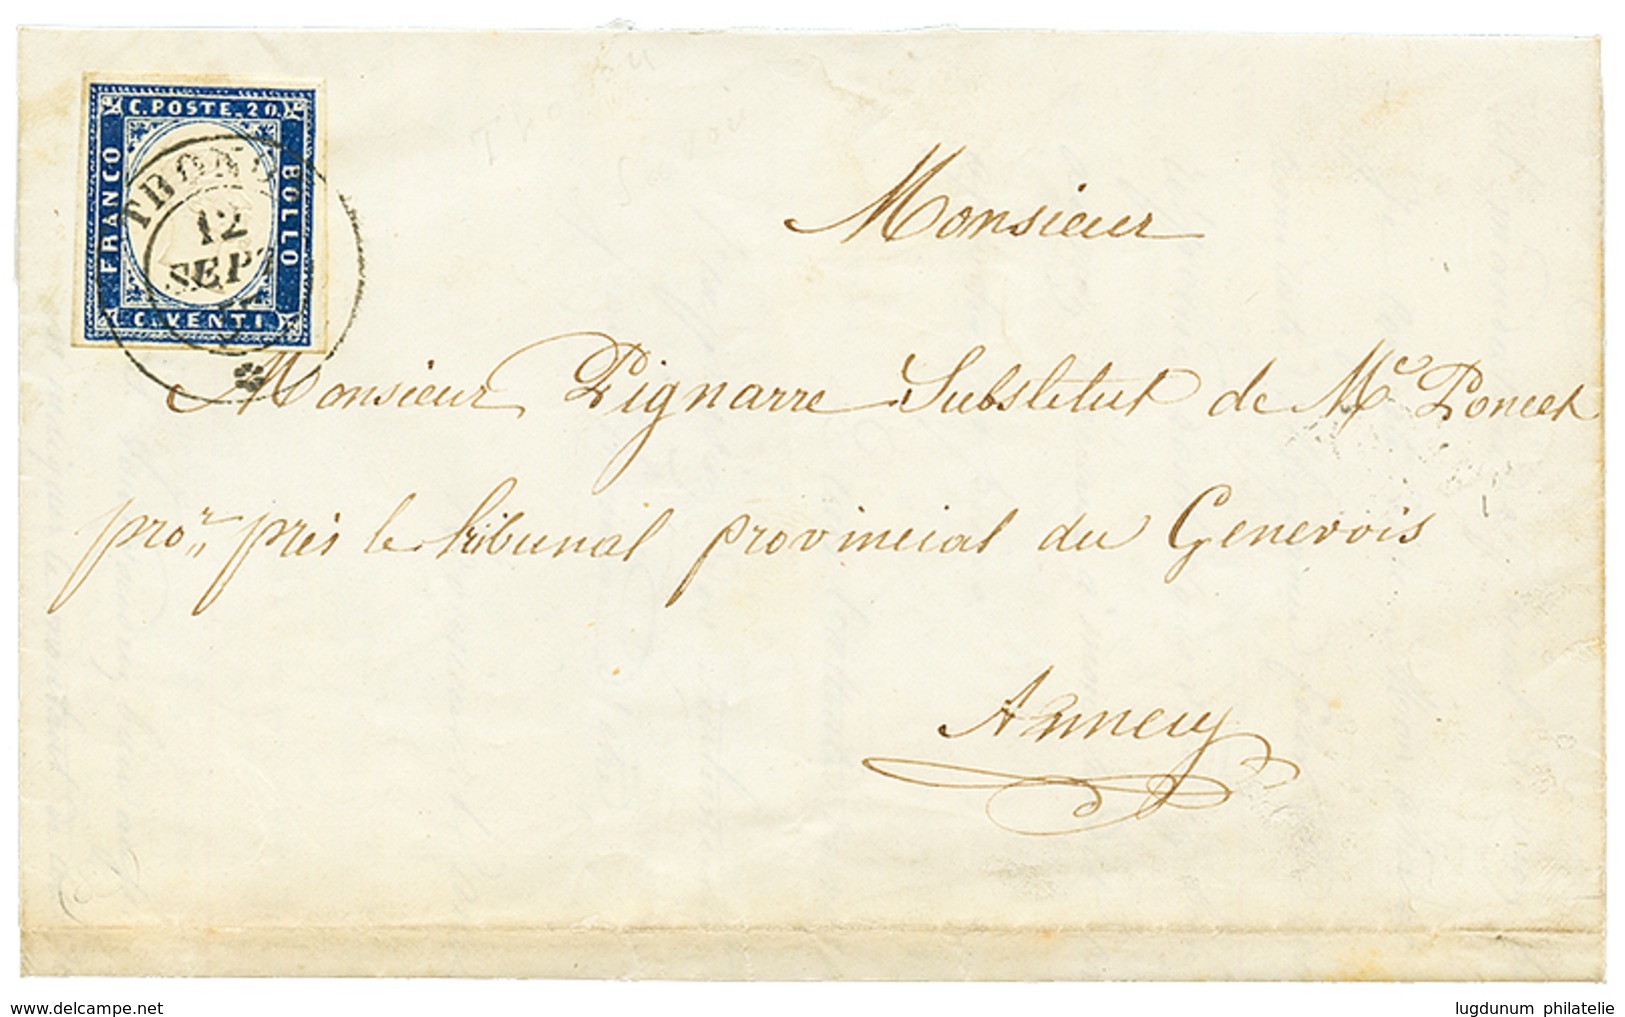 C. POSTE. 20.
FRANCO
BOLLO
C. VENTI.
12
SEPT
Monsieur
Monsieur Pignarre Substitut de Mr Poncet
pror près le tribunal provincial du Genevois
Annecy
www.delcampe.net
lugdunum philatelie